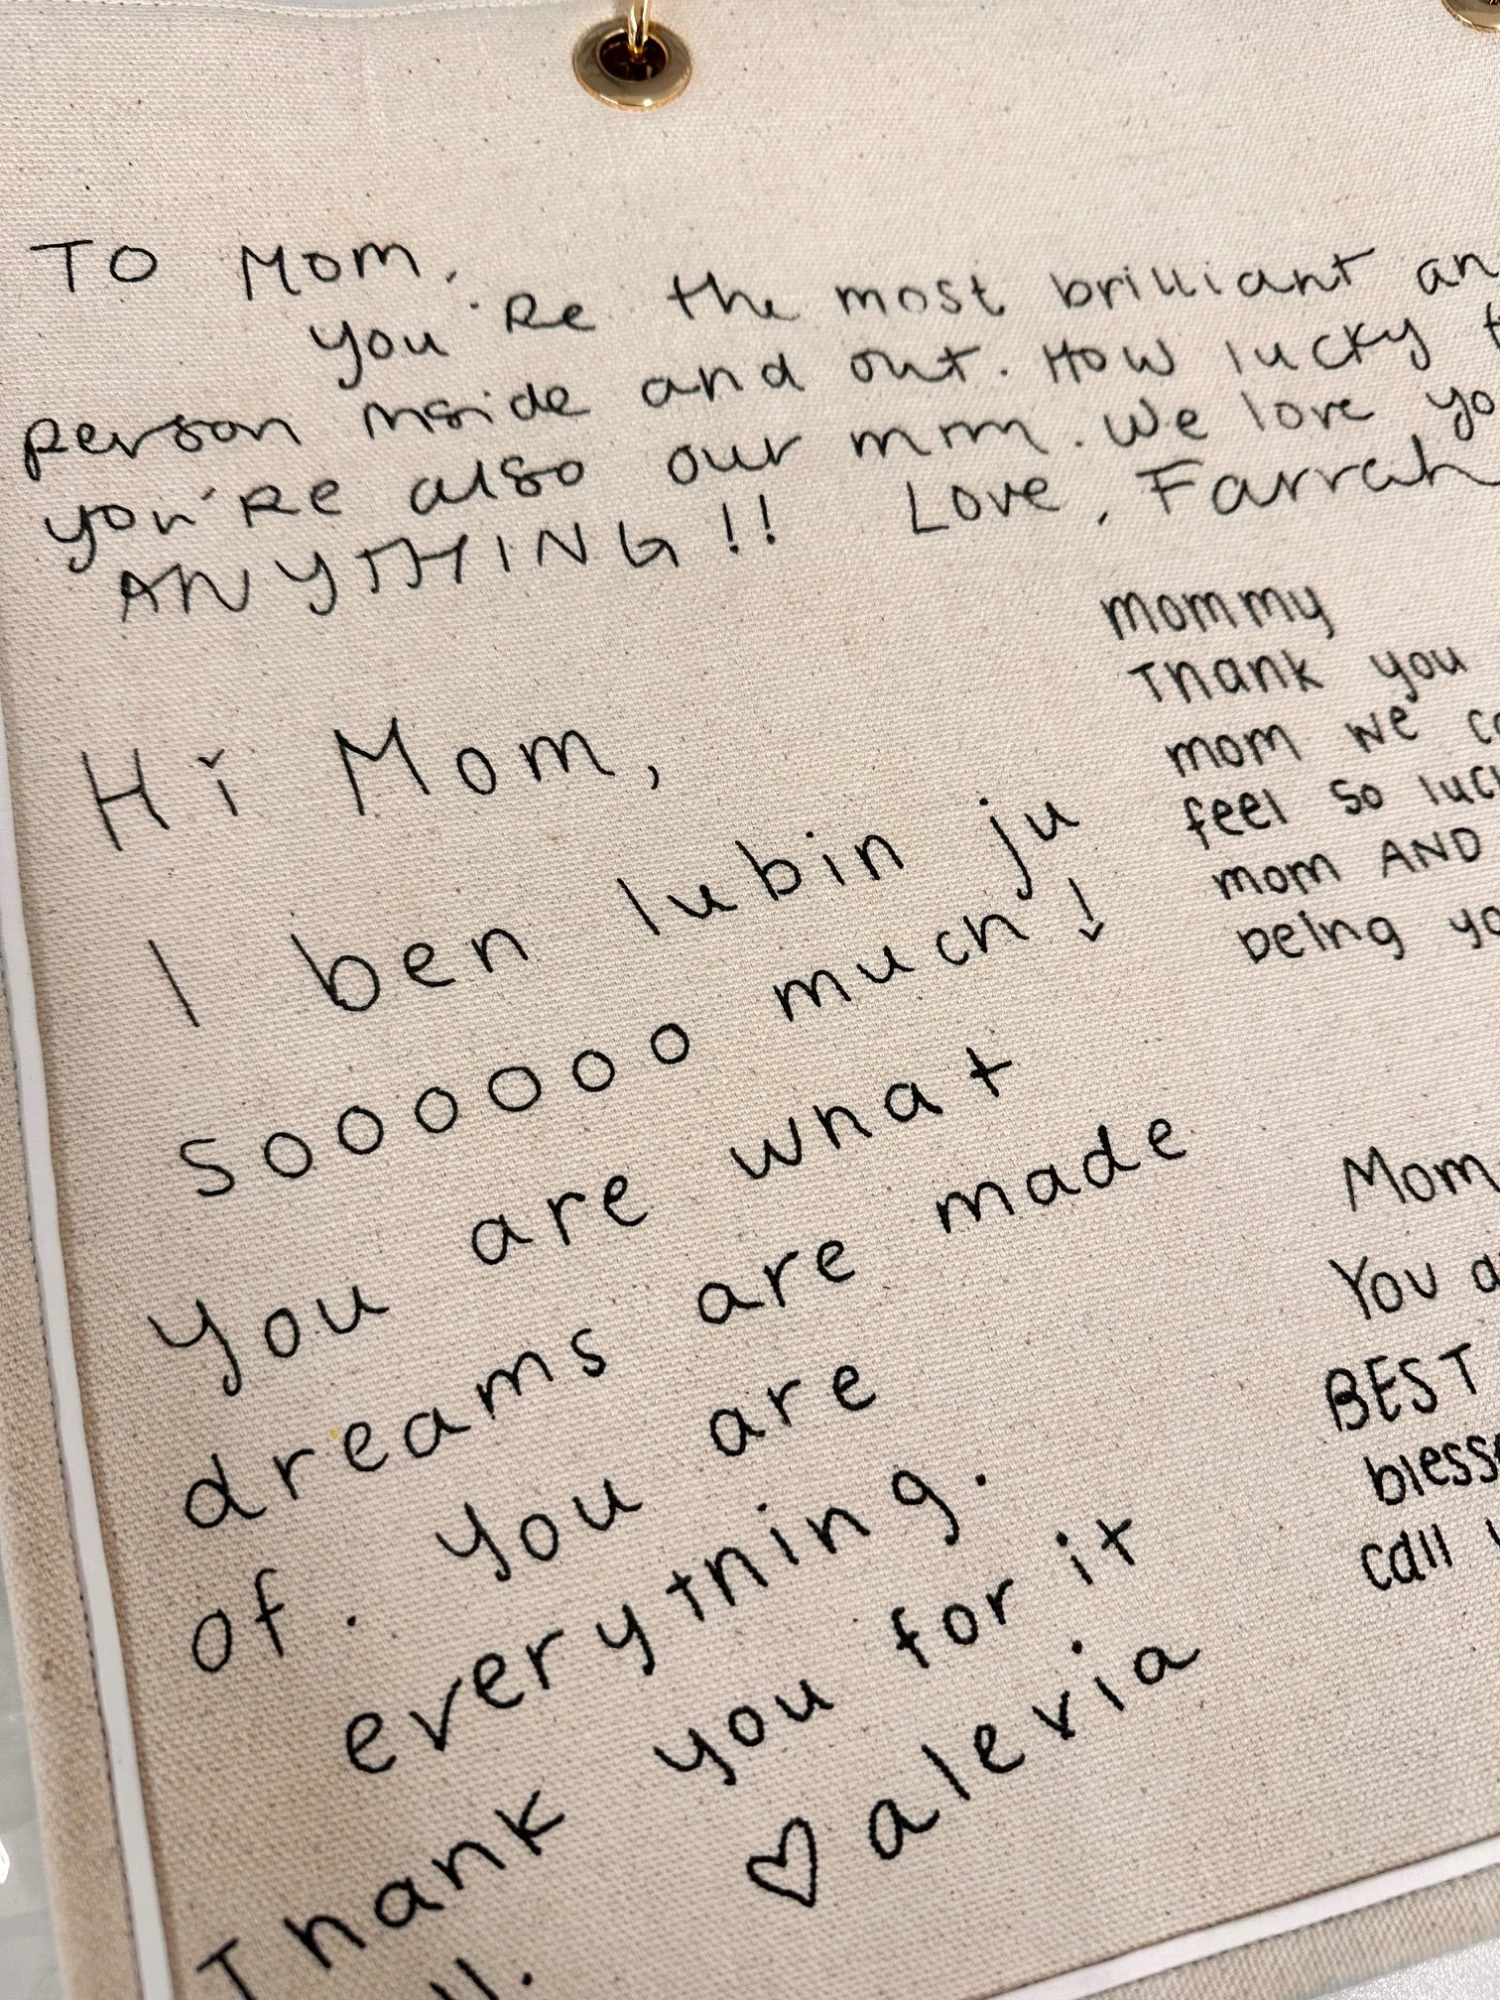 TO Mom,
you're the most brilliant an
person inside and out. How lucky t
you're also our mom. We love yo
ANYTHING!! Love, Farrah
mommy
Thank you
mom we c
feel so luc
mom AND
being yo
Hi Mom,
I ben lubin ju
soooooo much!
you are what
dreams are made
of. you are
everything.
Thank you for it
all.
♡ alexia
Mom
You a
BEST
bless
call